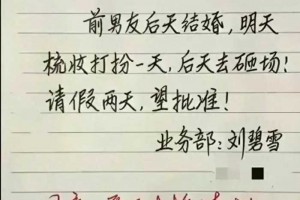 前男友后天结婚,明天
梳妆打扮一天,后天去砸场!
请假两天,望批准!
业务部:刘碧雪